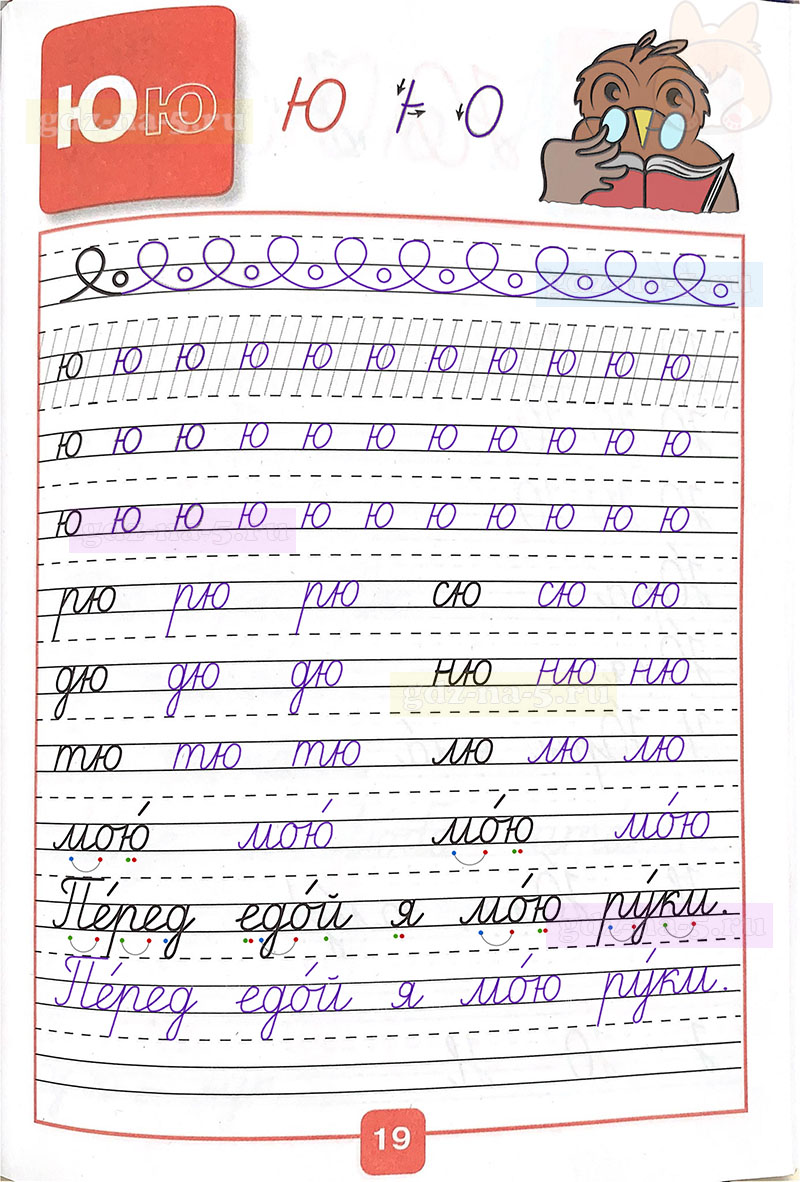 Ю ю Ю
gdz-na-5.ru
ю ю ю ю ю ю ю ю ю ю ю
ю ю ю ю ю ю ю ю ю ю ю
ю ю ю ю ю ю ю ю ю ю ю
gdz-na-5.ru
рю рю рю сю сю сю
дю дю дю ню ню ню
gdz-na-5.ru
тю тю тю лю лю лю
мою́ мою́ мо́ю мо́ю
Пе́ред едо́й я мо́ю ру́ки.
Пе́ред едо́й я мо́ю ру́ки.
19